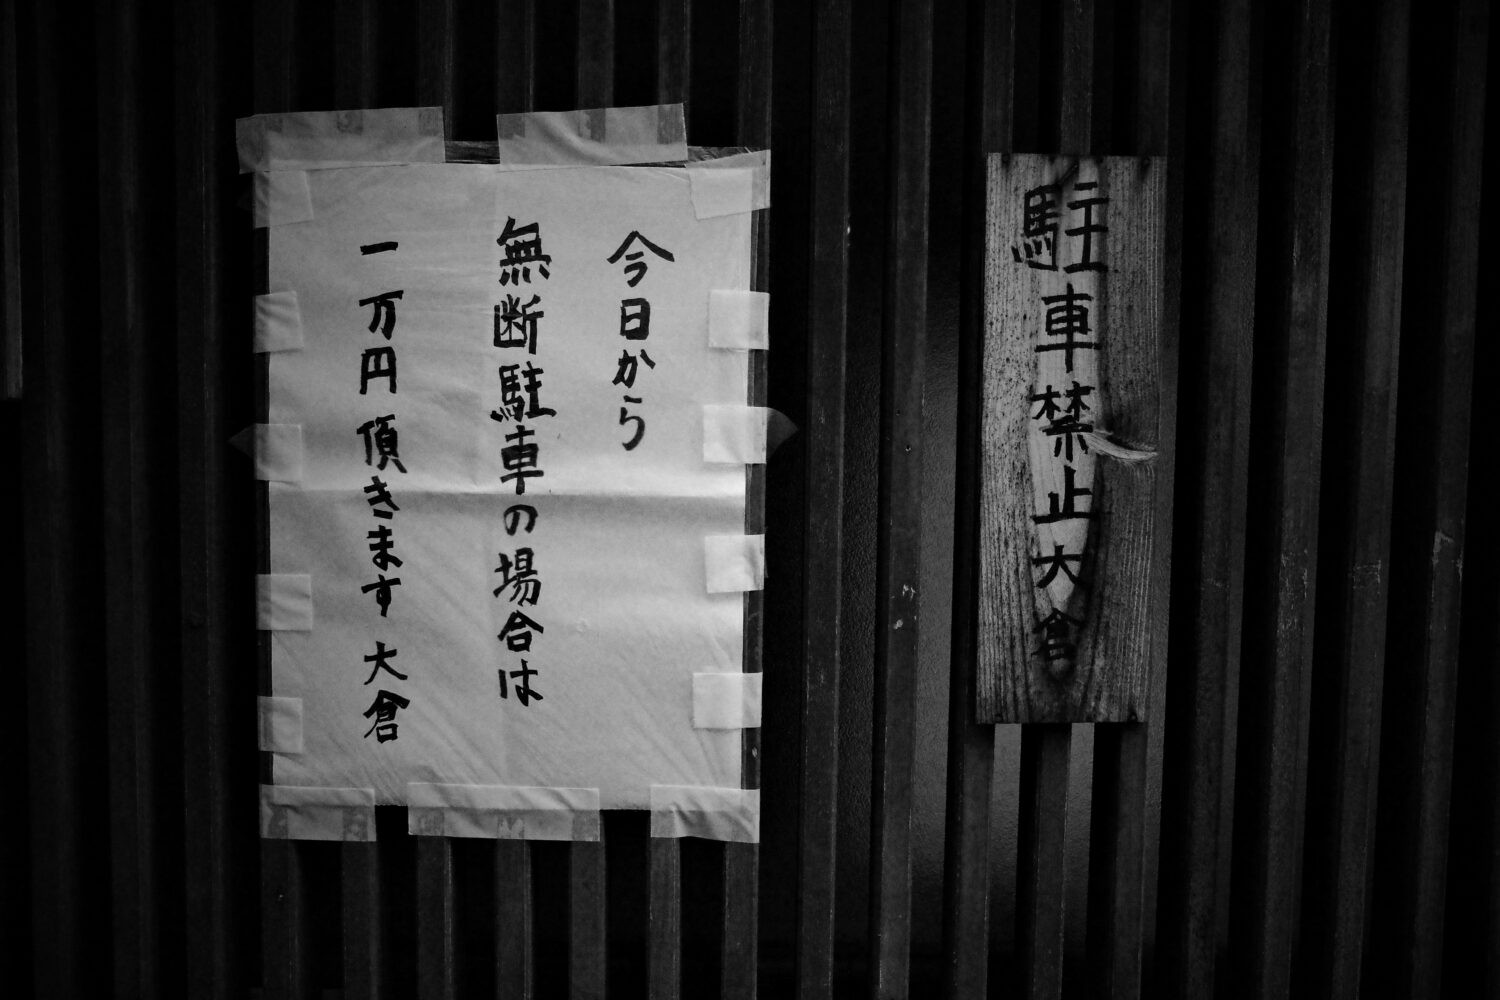 駐車禁止大倉
今日から
無断駐車の場合は
一万円頂きます 大倉